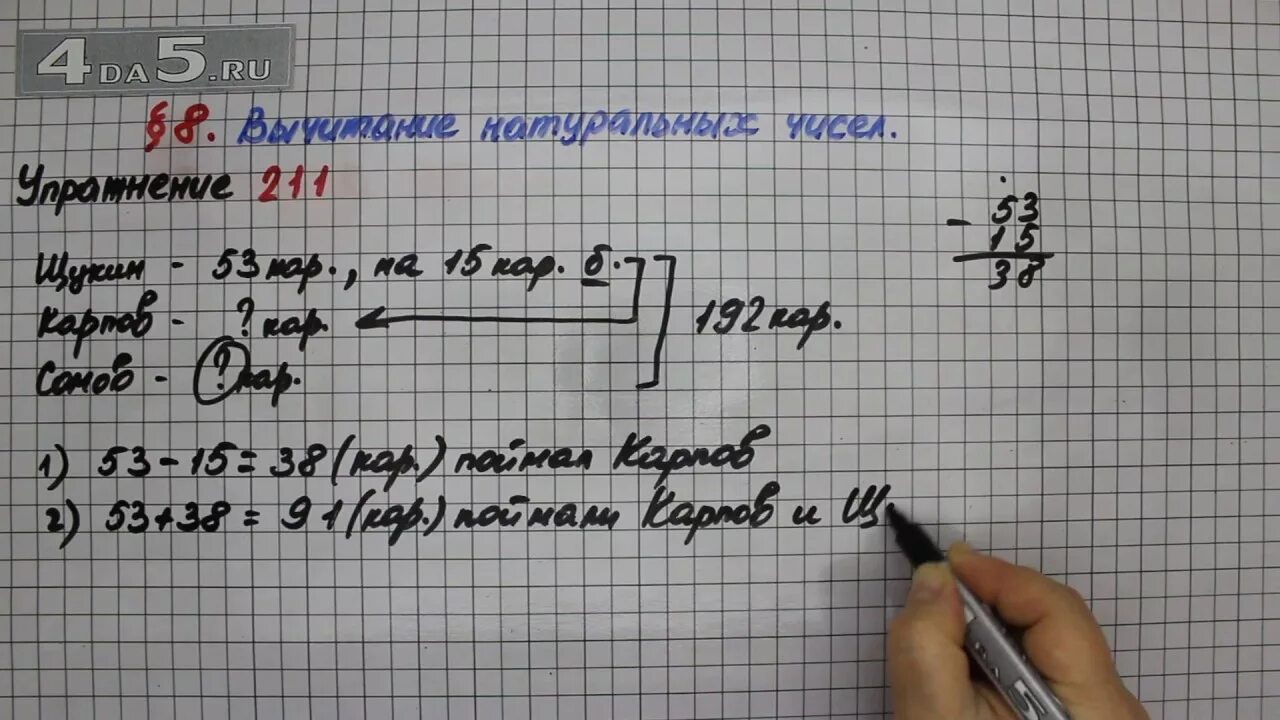 4DA5.RU
§ 8. Вычитание натуральных чисел.
Упражнение 211
Щукин - 53 кар., на 15 кар. б.
Карпов - ? кар.
Сомов - ? кар.
192 кар.
- 53
15
38
1) 53 - 15 = 38 (кар.) поймал Карпов
2) 53 + 38 = 91 (кар.) поймали Карпов и Щ
DA 5